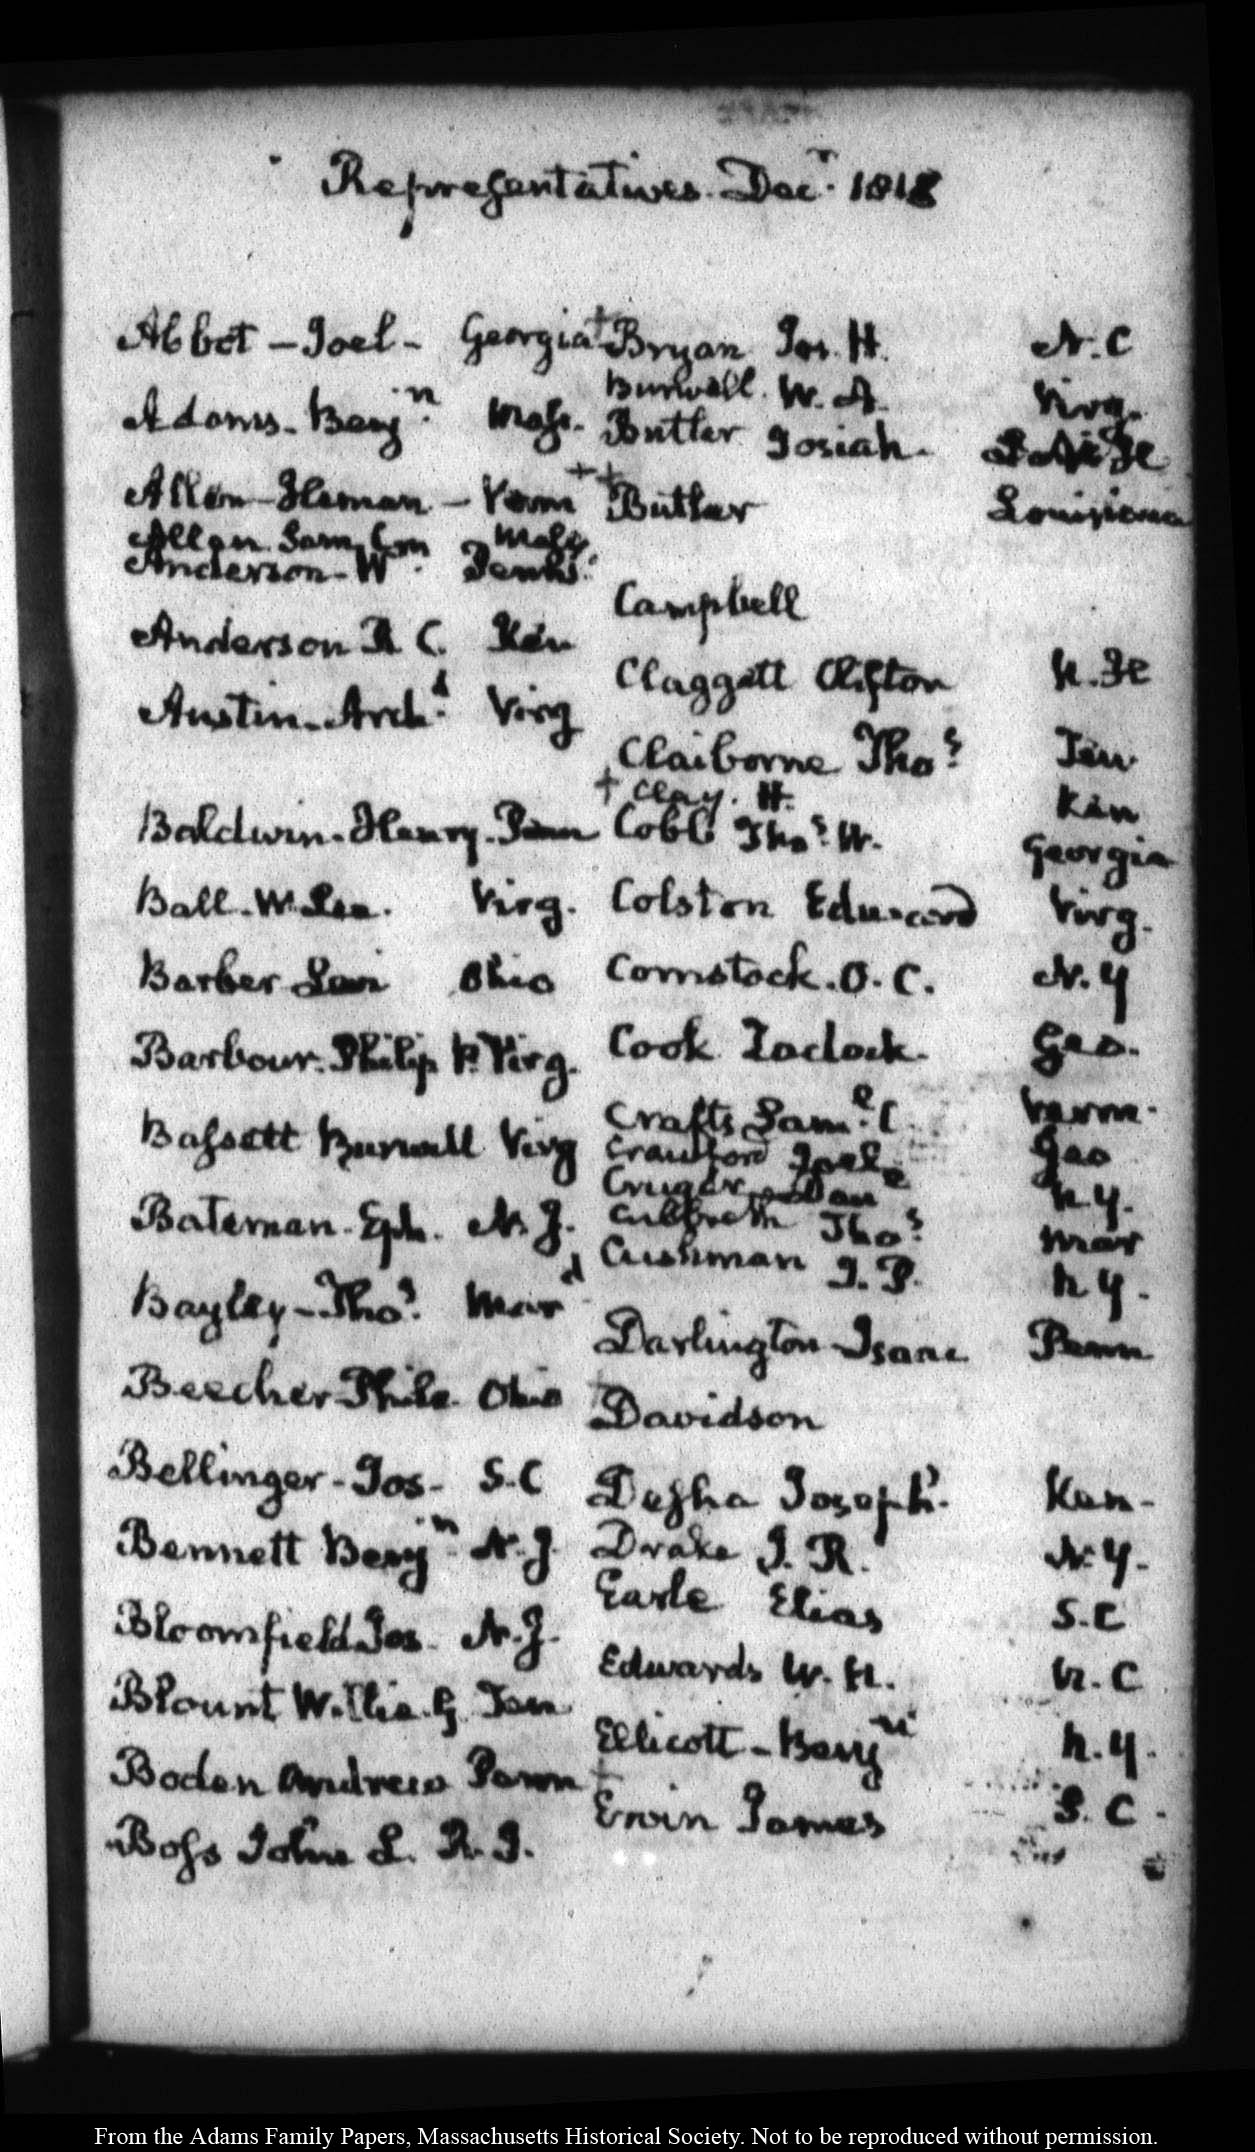 Representatives. Decr. 1818
Abbot – Joel – Georgia
Adams – Benjn. Mass.
Allen – Heman – Verm ++
Allen Sam. C. Mass
Anderson – Wm. Penns.
Anderson R C. Ken
Austin – Archd. Virg
Baldwin – Henry – Penn
Ball – W. Lee. Virg.
Barber Levi Ohio
Barbour. Philip P. Virg.
Bassett Burwell Virg
Bateman. Eph. N. J.
Bayley – Thos. Mard
Beecher Phile. Ohio
Bellinger – Jos – S. C
Bennett Benjn. N. J.
Bloomfield Jos. N. J.
Blount Willie. G Ten
Boden Andrew Penn
Boss John L. R. I.
+ Bryan Jos. H. N. C
Burwell. W. A. Virg.
Butler Josiah.
+ Butler Louisiana
Campbell
Claggett Clifton N. H
Claiborne Thos. Ten
+ Clay. H. Ken
Cobb Thos. W. Georgia
Colston Edward Virg.
Comstock. O. C. N. Y
Cook Zadock. Geo.
Crafts Saml. C. Verm.
Crawford Joel Geo
Cruger Danl N. Y.
Culbreth Thos. Mar
Cushman J. P. N. Y.
Darlington Isaac Penn
+ Davidson
Desha Joseph. Ken –
Drake J. R. N. Y.
Earle Elias S. C
Edwards W. H. N. C
Ellicott – Benjn N. Y.
+ Ervin James S. C.
From the Adams Family Papers, Massachusetts Historical Society. Not to be reproduced without permission.